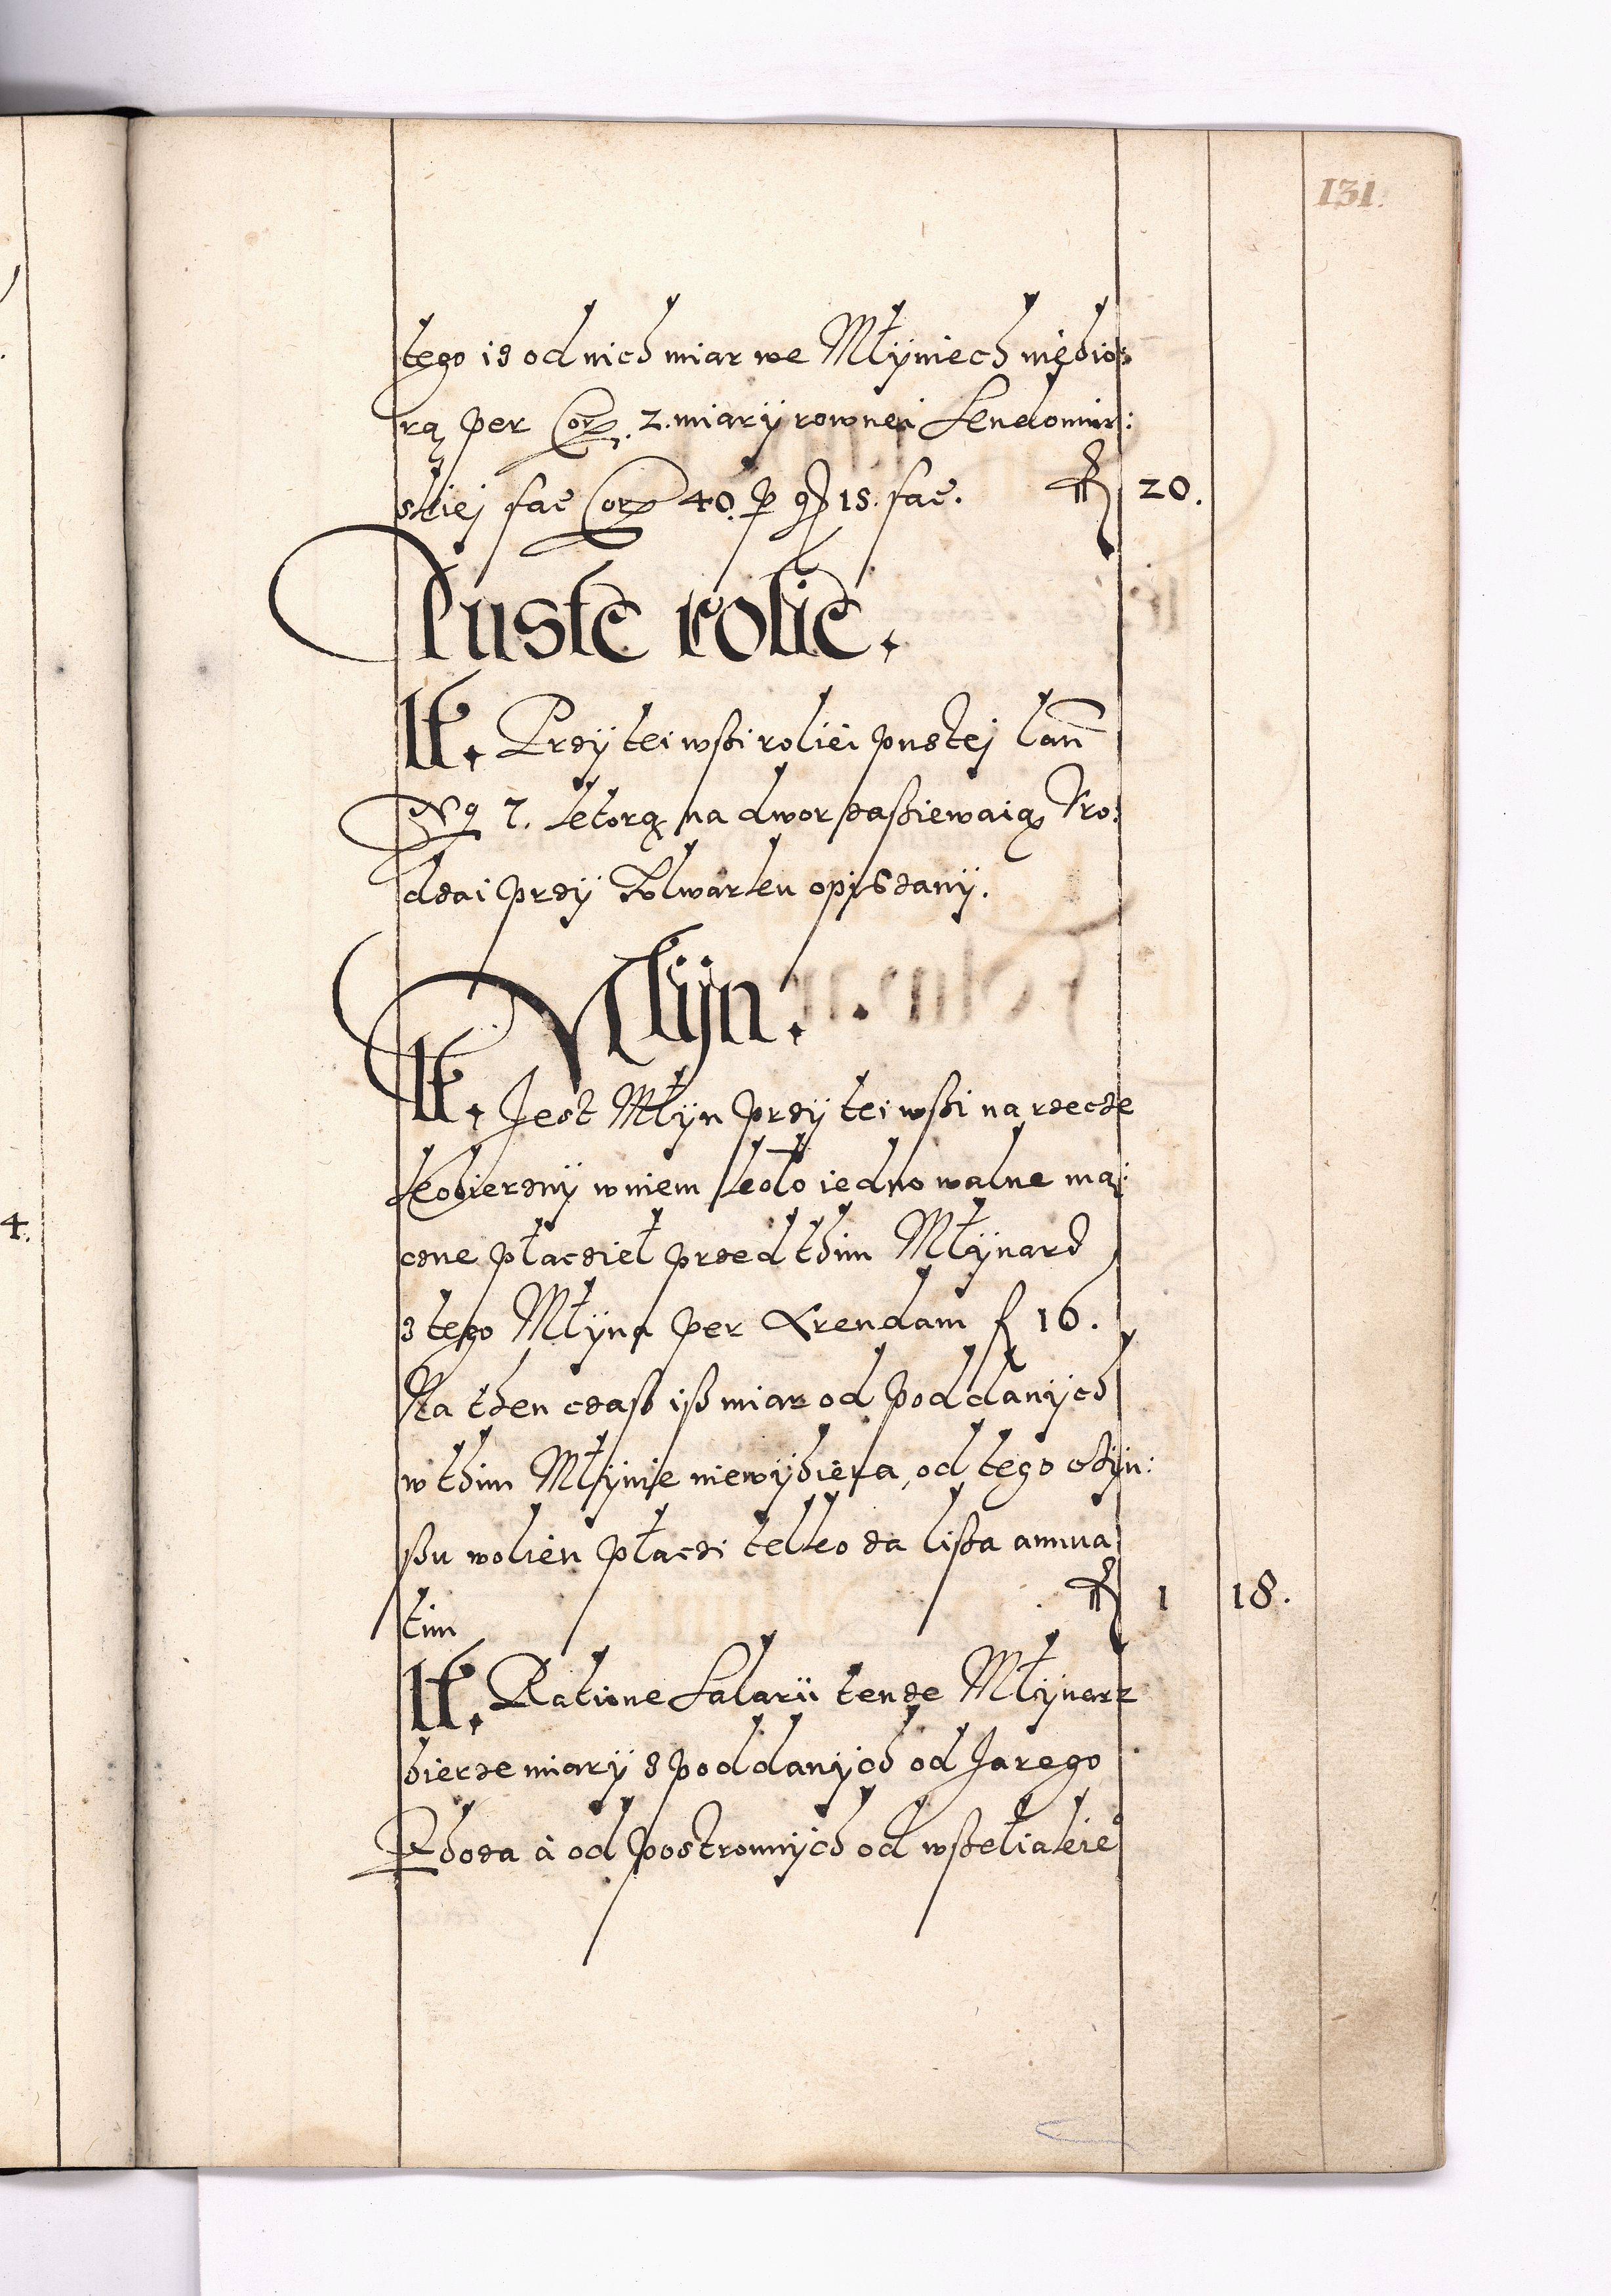 131.
tego is od nich miar we Młÿniech nię bio:
rą per Cor. 2. miarÿ rownei Sendomir:
skiej fac Cor 40. p gr 15. fac. 20.
Puste rolie.
It. Przÿ tei wsßi roliei pustej lan
No 7. ktorą na dwor zaßiewaią Vro:
dzai przÿ Folwarku opißzanÿ.
Młÿn.
It. Jest Młÿn przÿ tei wsßi na rzecze
Kobierznÿ w niem koło iedno walne mą:
czne płacziet przed thim Młÿnarz
z tego Młÿna per Arendam f 16.
Na then czaß iß miar od poddanÿch
w thim Młÿnie niewÿbiera, od tego czÿn:
ßu wolien płaczi telko za lißa annua
tim 1 18.
It. Ratione Salarii tenze Młÿnarz
bierze miarÿ s poddanÿch od Jarego
Zboza à od postronnÿch od wßeliakie
4.